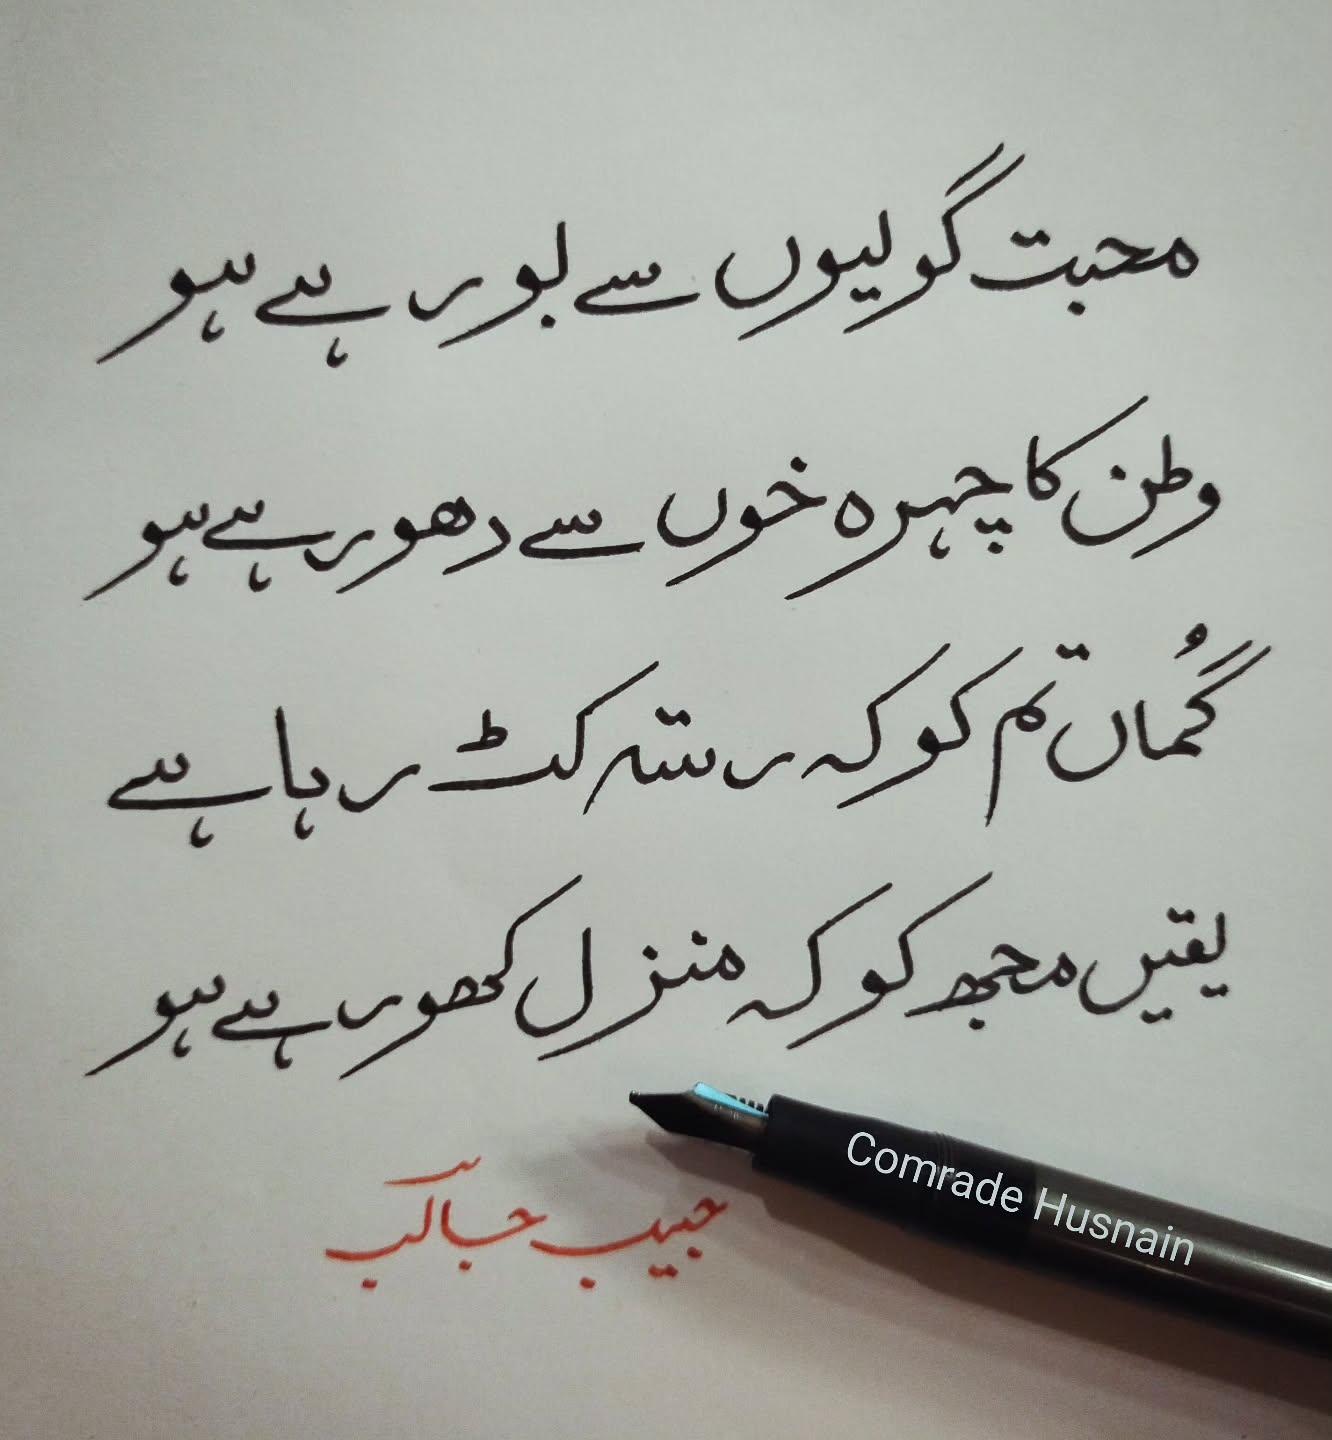 محبت گولیوں سے بو رہے ہو
وطن کا چہرہ خوں سے دھو رہے ہو
گُماں تم کو کہ رستہ کٹ رہا ہے
یقیں مجھ کو کہ منزل کھو رہے ہو
حبیب جالب
Comrade Husnain